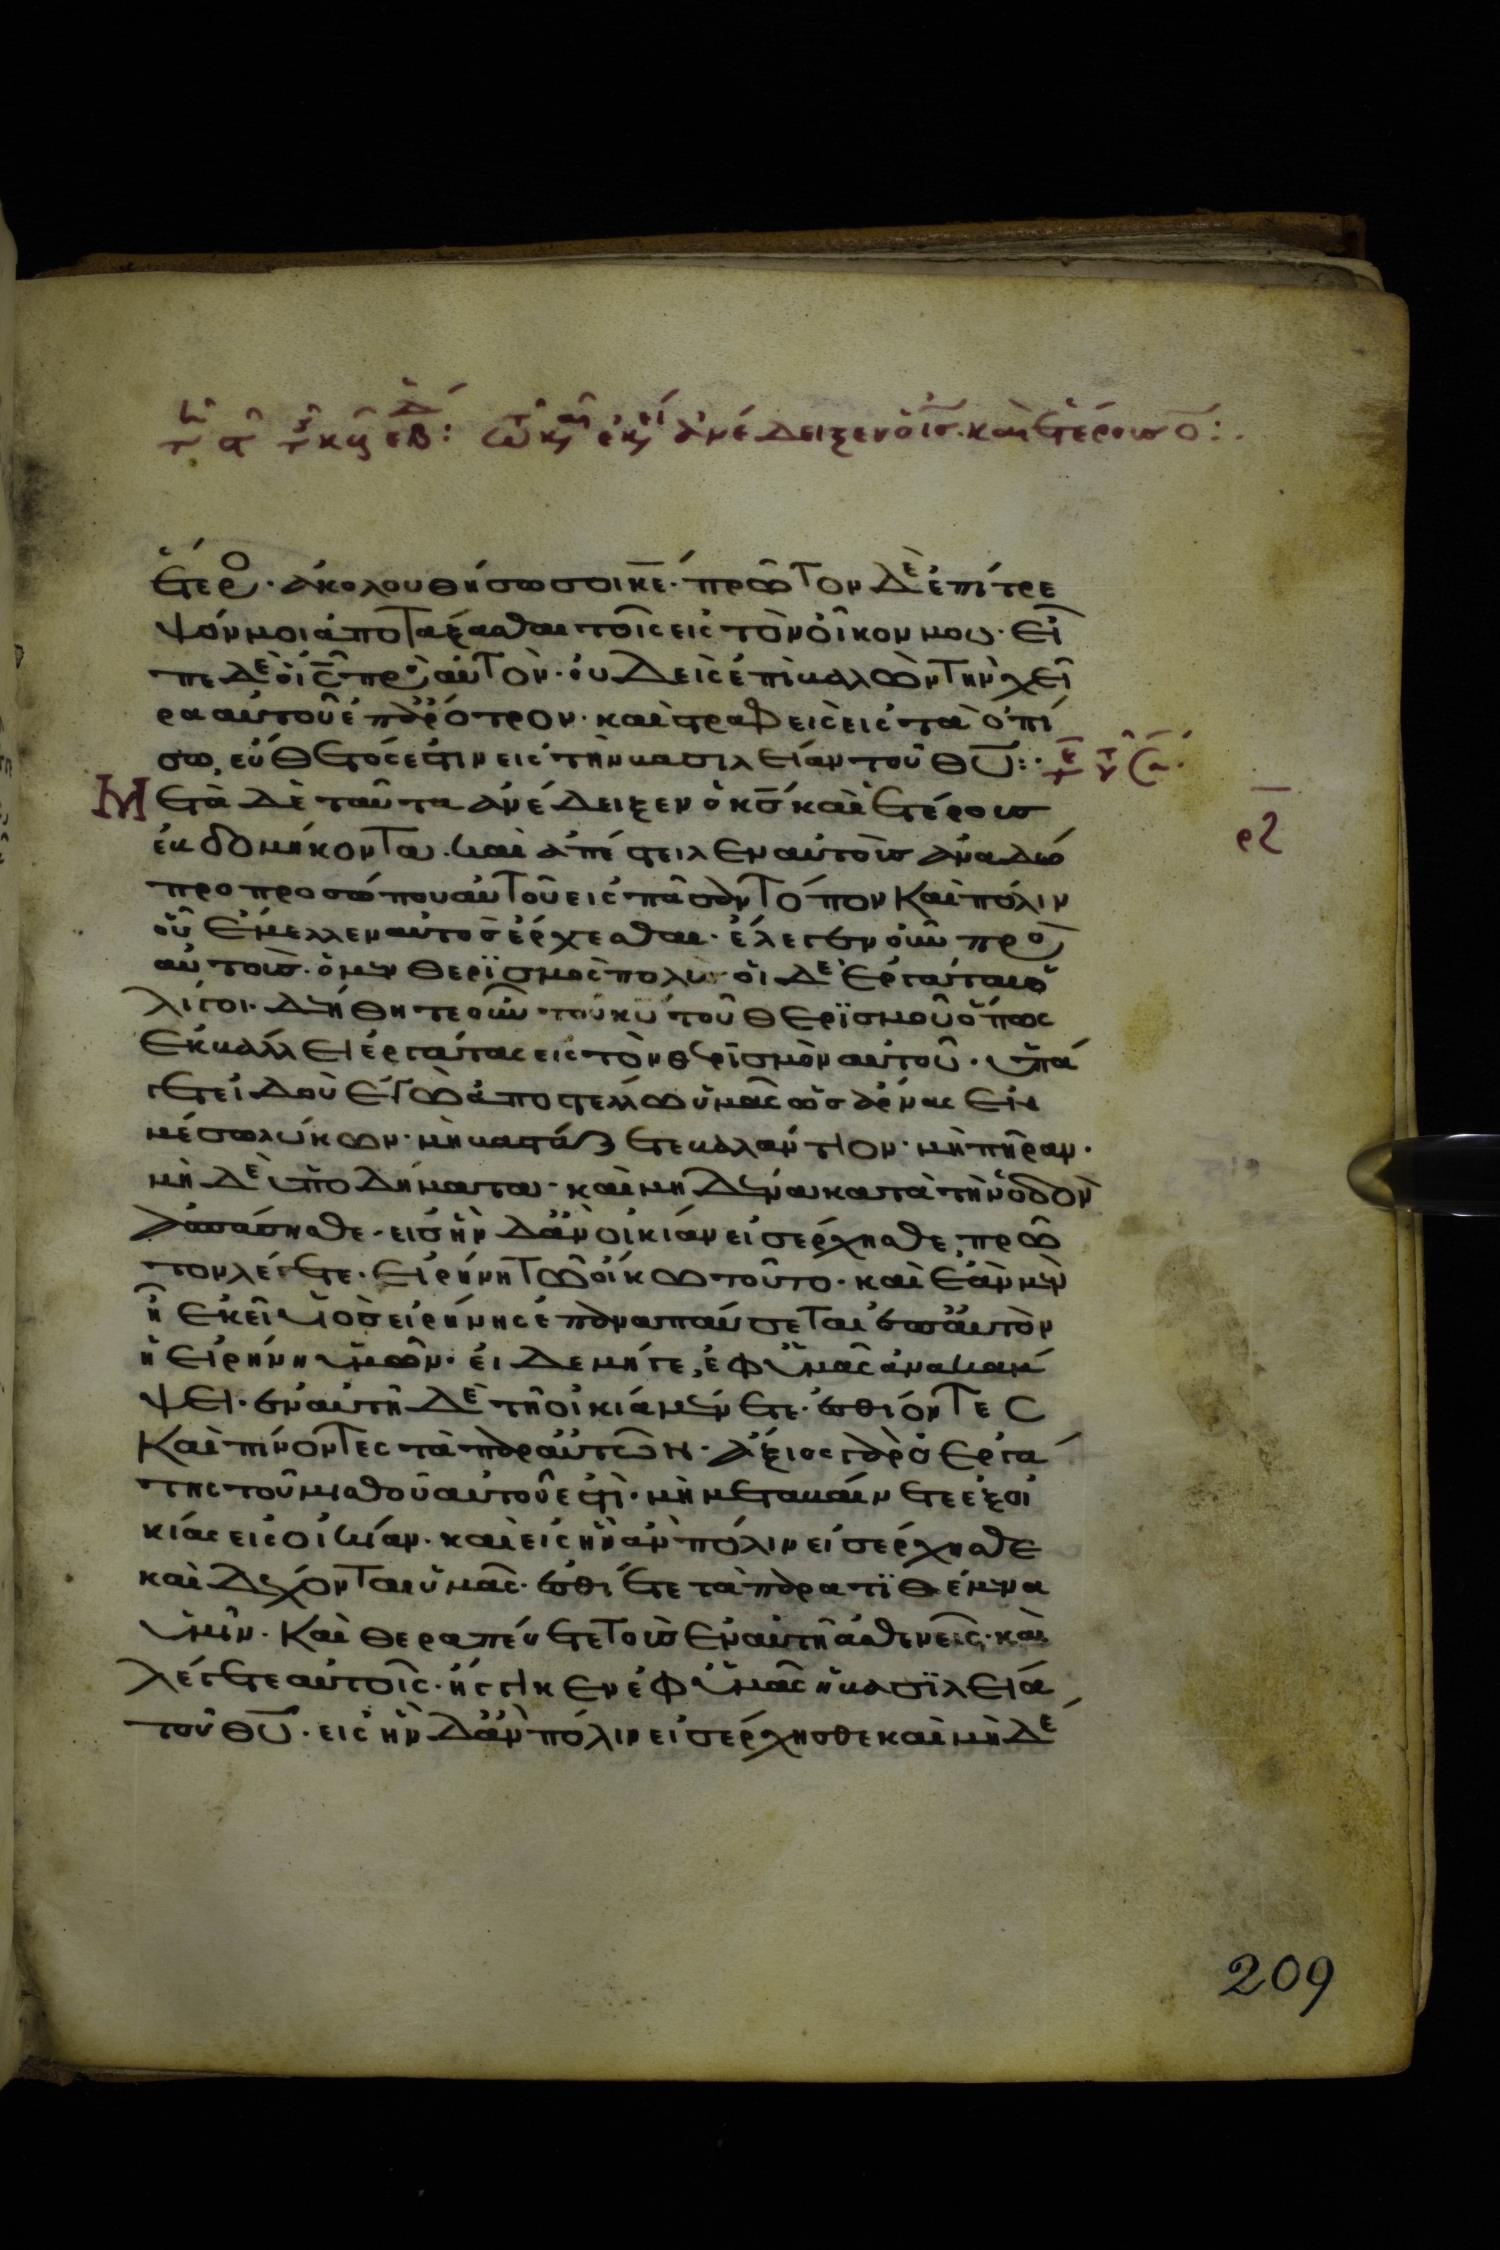 ἕτερος· ἀκολουθήσω σοι κε̅· πρῶτον δὲ ἐπίτρε
ψόν μοι ἀποτάξασθαι τοῖς εἰς τὸν οἶκον μου· εἶ
πε δὲ ὁ ις̅ πρὸς αὐτὸν· οὐδεὶς ἐπιβαλὼν τὴν χεῖ
ρα αὐτοῦ ἐπ' ἄροτρον· καὶ στραφεὶς εἰς τὰ ὀπί
σω, εὔθετός ἐστιν εἰς τὴν βασιλείαν τοῦ θυ̅:·
Μετὰ δὲ ταῦτα ἀνέδειξεν ὁ κς̅ καὶ ἑτέρους
ἑβδομήκοντα· καὶ ἀπέστειλεν αὐτοὺς ἀνὰ δύο
πρὸ προσώπου αὐτοῦ εἰς πᾶσαν τόπον καὶ πόλιν
οὗ ἔμελλεν αὐτὸς ἔρχεσθαι· ἔλεγεν οὖν πρὸς
αὐτούς· ὁ μὲν θερϊσμὸς πολὺς· οἱ δὲ ἐργάται ὀ
λίγοι· δεήθητε οὖν τοῦ κυ̅ τοῦ θερϊσμοῦ ὅπως
ἐκβάλλει ἐργάτας εἰς τὸν θερϊσμὸν αὐτοῦ· ὑπά
γετε ἰδοὺ ἐγὼ ἀποστέλλω ὑμᾶς ὡς ἄρνας ἐν
μέσω λύκων· μὴ βαστάζετε βαλάντιον· μὴ πήραν·
μὴ δὲ ὑποδήματα· καὶ μηδένα κατὰ τὴν ὁδὸν
ἀσπάσησθε· εἰς ἣν δ' ἂν οἰκίαν εἰσέρχησθε, πρῶ
τον λέγετε· εἰρήνη τῶ οἴκω τούτο· καὶ ἐὰν μὲν
ῆ ἐκεῖ υἱὸς εἰρήνης ἐπαναπαύσεται ἐπ' αὐτὸν
ἡ εἰρήνη ὑμῶν· εἰ δὲ μήγε, ἐφ' ὑμᾶς ἀνακάμ
ψει· ἐν αὐτῆ δὲ τῆ οἰκία μένετε· ἐσθίοντες
καὶ πίνοντες τὰ παρ' αὐτῶν· ἄξιος γὰρ ὁ ἐργά
της τοῦ μισθοῦ αὐτοῦ ἐστὶ· μὴ μεταβαίνετε ἐξ οἰ
κίας εἰς οἰκίαν· καὶ εἰς ἣν ἂν πόλιν εἰσέρχησθε
καὶ δέχονται ὑμᾶς· ἐσθίετε τὰ παρατϊθέμενα
ὑμῖν· καὶ θεραπεύετε τοὺς ἐν αὐτῆ ἀσθενεῖς· καὶ
λέγετε αὐτοῖς· ἤγγικεν ἐφ' ὑμᾶς ἡ βασϊλεία
τοῦ θυ̅· εἰς ἣν δ' ἂν πόλιν εἰσέρχησθε καὶ μὴ δέ
209